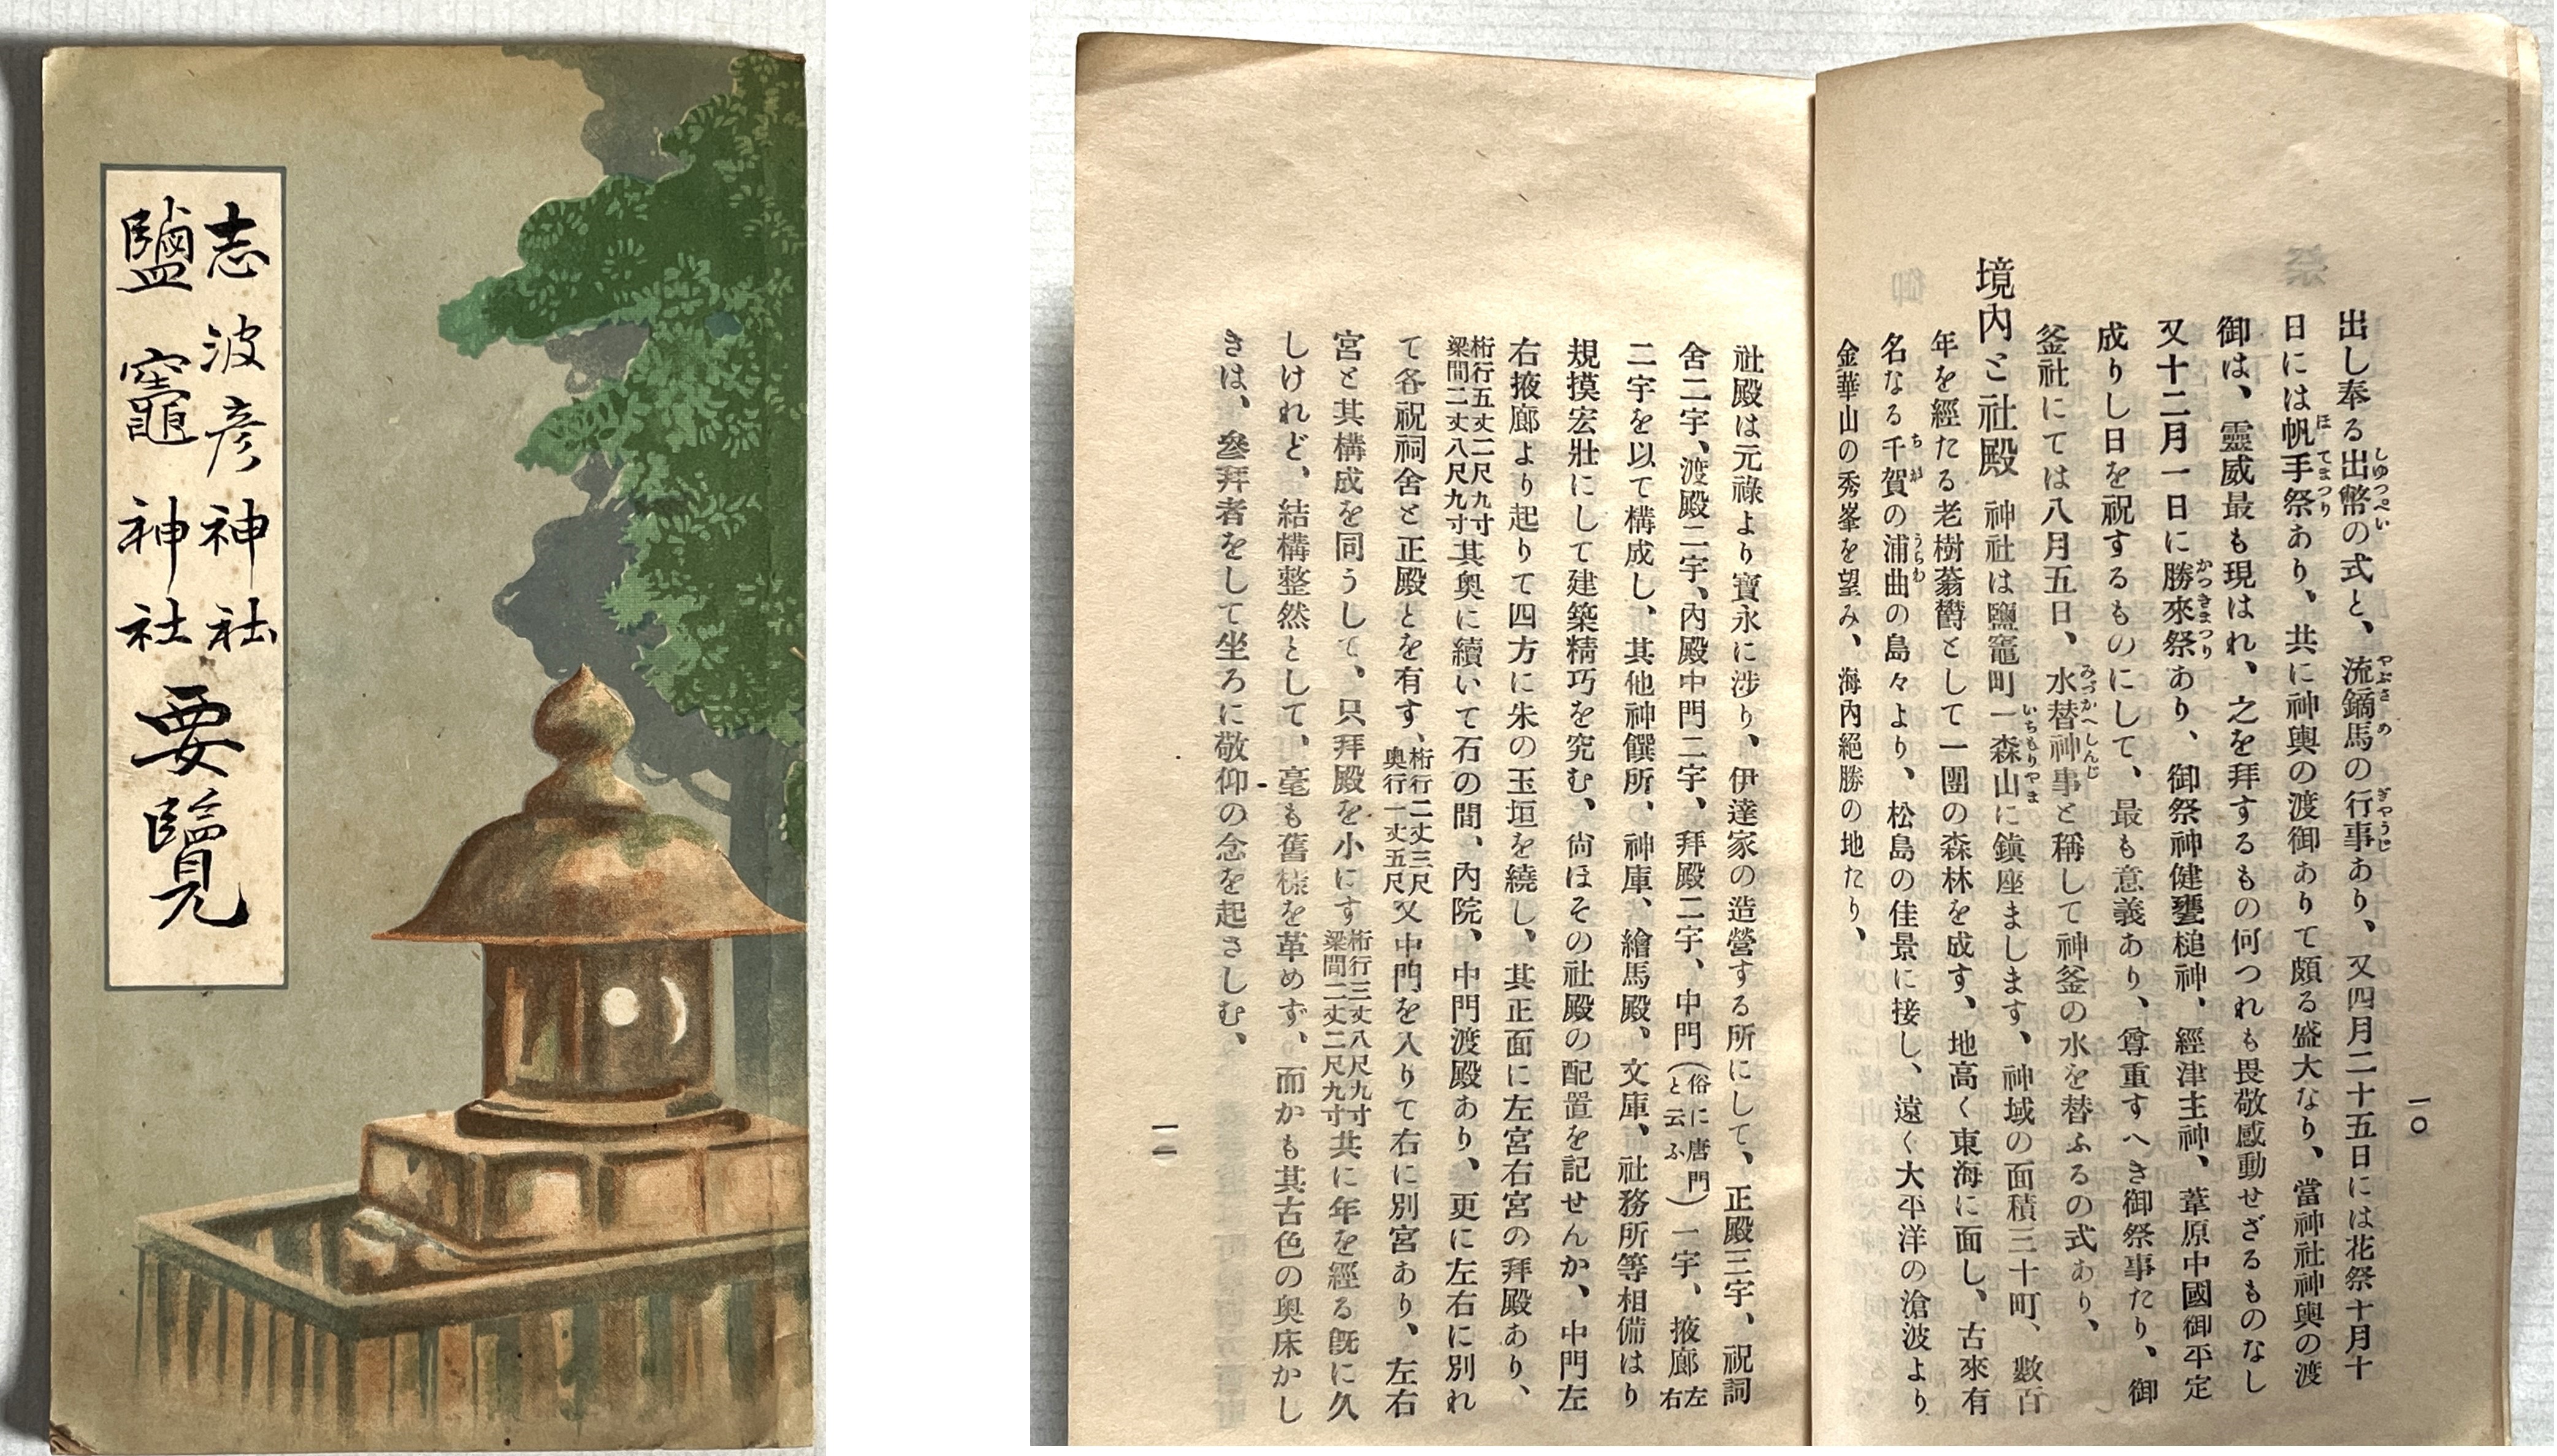 志波彦神社
鹽竈神社
要覽
一〇
出し奉る出幣の式と、流鏑馬の行事あり、又四月二十五日には花祭十月十
日には帆手祭あり、共に神輿の渡御ありて頗る盛大なり、當神社神輿の渡
御は、靈威最も現はれ、之を拜するもの何つれも畏敬感動せざるものなし
又十二月一日に勝來祭あり、御祭神健甕槌神、經津主神、葦原中國御平定
成りし日を祝するものにして、最も意義あり、尊重すへき御祭事たり、御
釜社にては八月五日、水替神事と稱して神釜の水を替ふるの式あり、
境内と社殿 神社は鹽竈町一森山に鎭座まします、神域の面積三十町、數百
年を經たる老樹蓊鬱として一團の森林を成す、地高く東海に面し、古來有
名なる千賀の浦曲の島々より、松島の佳景に接し、遠く大平洋の滄波より
金華山の秀峯を望み、海內絕勝の地たり、
社殿は元祿より寶永に涉り、伊達家の造營する所にして、正殿三宇、祝詞
舍二宇、渡殿二宇、內殿中門二宇、拜殿二宇、中門(俗に唐門と云ふ)一宇、掖廊左右
二宇を以て構成し、其他神饌所、神庫、繪馬殿、文庫、社務所等相備はり
規摸宏壯にして建築精巧を究む、尙ほその社殿の配置を記せんか、中門左
右掖廊より起りて四方に朱の玉垣を繞し、其正面に左宮右宮の拜殿あり、
桁行五丈二尺九寸梁間二丈八尺九寸其奧に續いて石の間、內院、中門渡殿あり、更に左右に別れ
て各祝祠舍と正殿とを有す、桁行二丈三尺奧行一丈五尺又中門を入りて右に別宮あり、左右
宮と其構成を同うして、只拜殿を小にす桁行三丈八尺九寸梁間二丈二尺九寸共に年を經る旣に久
しけれど、結構整然として、毫も舊樣を革めず、而かも其古色の奧床かし
きは、參拜者をして坐ろに敬仰の念を起さしむ、
一一